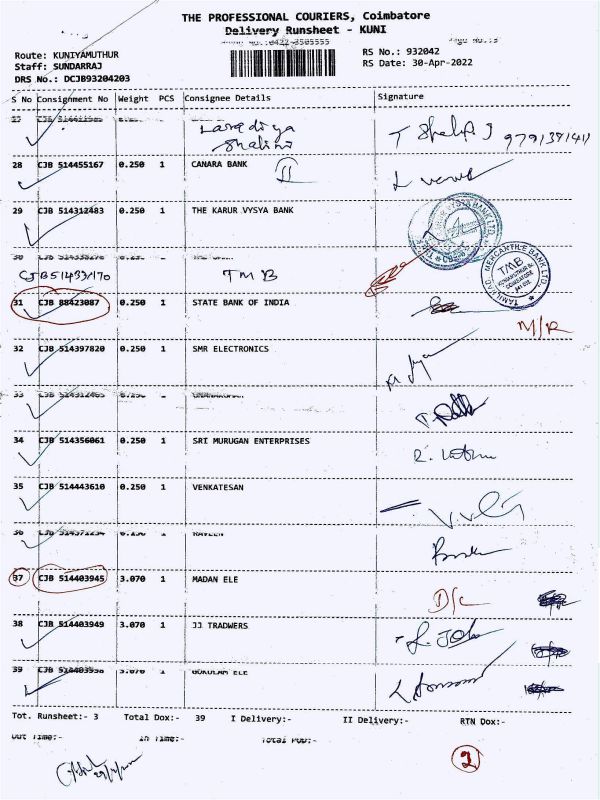 THE PROFESSIONAL COURIERS, Coimbatore
Delivery Runsheet - KUNI
Route: KUNIYAMUTHUR
Staff: SUNDARRAJ
DRS No.: DCJB93204203
Phone No.:0422-3505555
Page No.:3
RS No.: 932042
RS Date: 30-Apr-2022
S No Consignment No Weight PCS Consignee Details Signature
Shalini T Shalini J
28 CJB 514455167 0.250 1 CANARA BANK
29 CJB 514312483 0.250 1 THE KARUR VYSYA BANK
30
CJB51433170 TMB
TAMILNAD MERCANTILE BANK LTD. TMB
31 CJB 88423087 0.250 1 STATE BANK OF INDIA
M/R
32 CJB 514397820 0.250 1 SMR ELECTRONICS
33 CJB 514312465 0.250
34 CJB 514356061 0.250 1 SRI MURUGAN ENTERPRISES
35 CJB 514443610 0.250 1 VENKATESAN
36 CJB 514371234 0.150 1 RAVEEN
37 CJB 514403945 3.070 1 MADAN ELE
D/L
38 CJB 514403949 3.070 1 JJ TRADWERS
39 CJB 514403938 3.070 1 GOKULAM ELE
Tot. Runsheet:- 3 Total Dox:- 39 I Delivery:- II Delivery:- RTN Dox:-
Out Time:- In Time:- Total POD:-
2